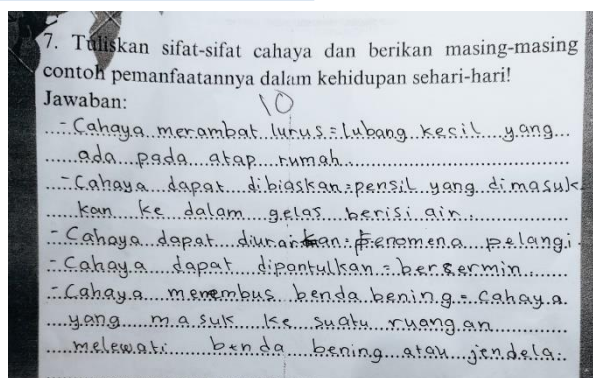 7. Tuliskan sifat-sifat cahaya dan berikan masing-masing
contoh pemanfaatannya dalam kehidupan sehari-hari!
Jawaban:
10
- Cahaya merambat lurus = lubang kecil yang
ada pada atap rumah.
- Cahaya dapat dibiaskan = pensil yang dimasuk
kan ke dalam gelas berisi air.
- Cahaya dapat diuraikan = fenomena pelangi.
- Cahaya dapat dipantulkan = bersermin
- Cahaya menembus benda bening = Cahaya
yang masuk ke suatu ruangan
melewati benda bening atau jendela.